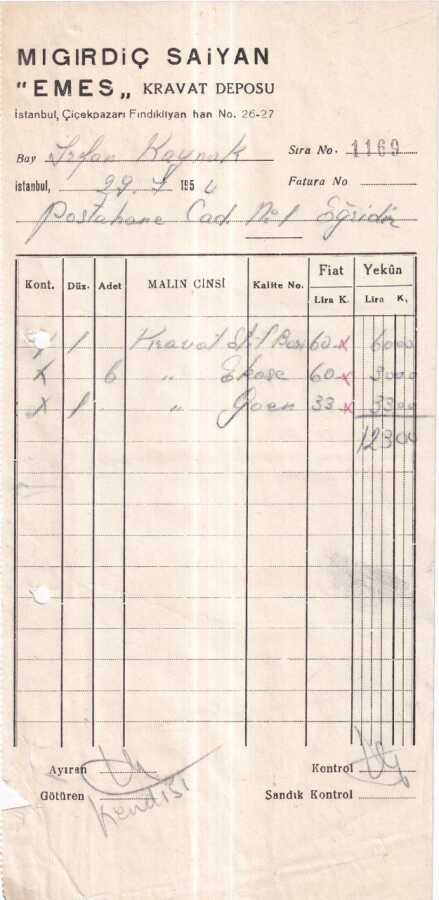 MIGIRDİÇ SAİYAN
"EMES„ KRAVAT DEPOSU
İstanbul, Çiçekpazarı Fındıkliyan han No. 26-27
Bay İrfan Kaynak Sıra No. 1169
İstanbul, 29.7.1954 Fatura No
Postahane Cad. No 1 Eğridir
Kont. Düz. Adet MALIN CİNSİ Kalite No. Fiat Yekûn
Lira K. Lira K.
x 1 Kravat 60 x 6000
x 6 " Ekose 60 x 3000
x 1 " 33 x 3300
12300
Ayıran Kontrol
Götüren Kendisi Sandık Kontrol